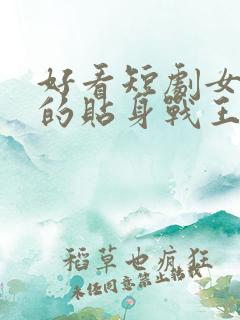 好看短劇女
的貼身戰王
稻草也瘋狂
未经同意禁止转载